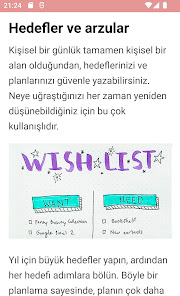 21:24
Hedefler ve arzular
Kişisel bir günlük tamamen kişisel bir
alan olduğundan, hedeflerinizi ve
planlarınızı güvenle yazabilirsiniz.
Neye uğraştığınızı her zaman yeniden
düşünebildiğiniz için bu çok
kullanışlıdır.
WISH LIST
WANT
NEED
Bookshelf
Yıl için büyük hedefler yapın, ardından
her hedefi adımlara bölün. Böyle bir
planlama sayesinde, planın çok daha